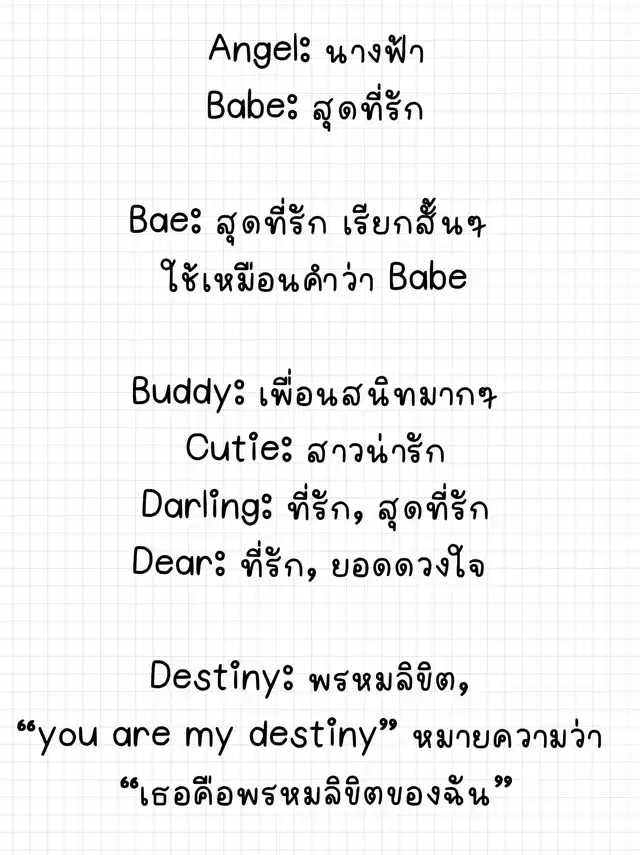 Angel: นางฟ้า
Babe: สุดที่รัก
Bae: สุดที่รัก เรียกสั้นๆ
ใช้เหมือนคำว่า Babe
Buddy: เพื่อนสนิทมากๆ
Cutie: สาวน่ารัก
Darling: ที่รัก, สุดที่รัก
Dear: ที่รัก, ยอดดวงใจ
Destiny: พรหมลิขิต,
“you are my destiny” หมายความว่า
“เธอคือพรหมลิขิตของฉัน”